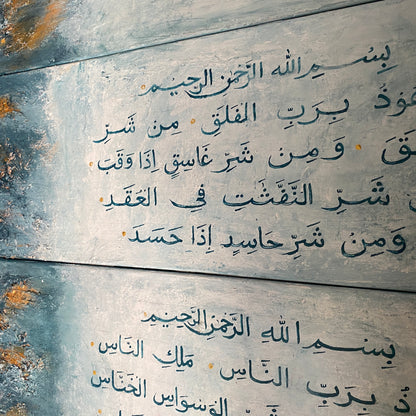 بِسْمِ اللهِ الرَّحْمٰنِ الرَّحِيْمِ
وذُ بِرَبِّ الفَلَقِ • مِن شَرِّ
قَ • وَمِن شَرِّ غَاسِقٍ إِذَا وَقَبَ •
شَرِّ النَّفّٰثٰتِ فِي العُقَدِ •
وَمِنْ شَرِّ حَاسِدٍ إِذَا حَسَدَ •
بِسْمِ اللهِ الرَّحْمٰنِ الرَّحِيْمِ
ذُ بِرَبِّ النَّاسِ • مَلِكِ النَّاسِ •
شَرِّ الوَسْوَاسِ الخَنَّاسِ